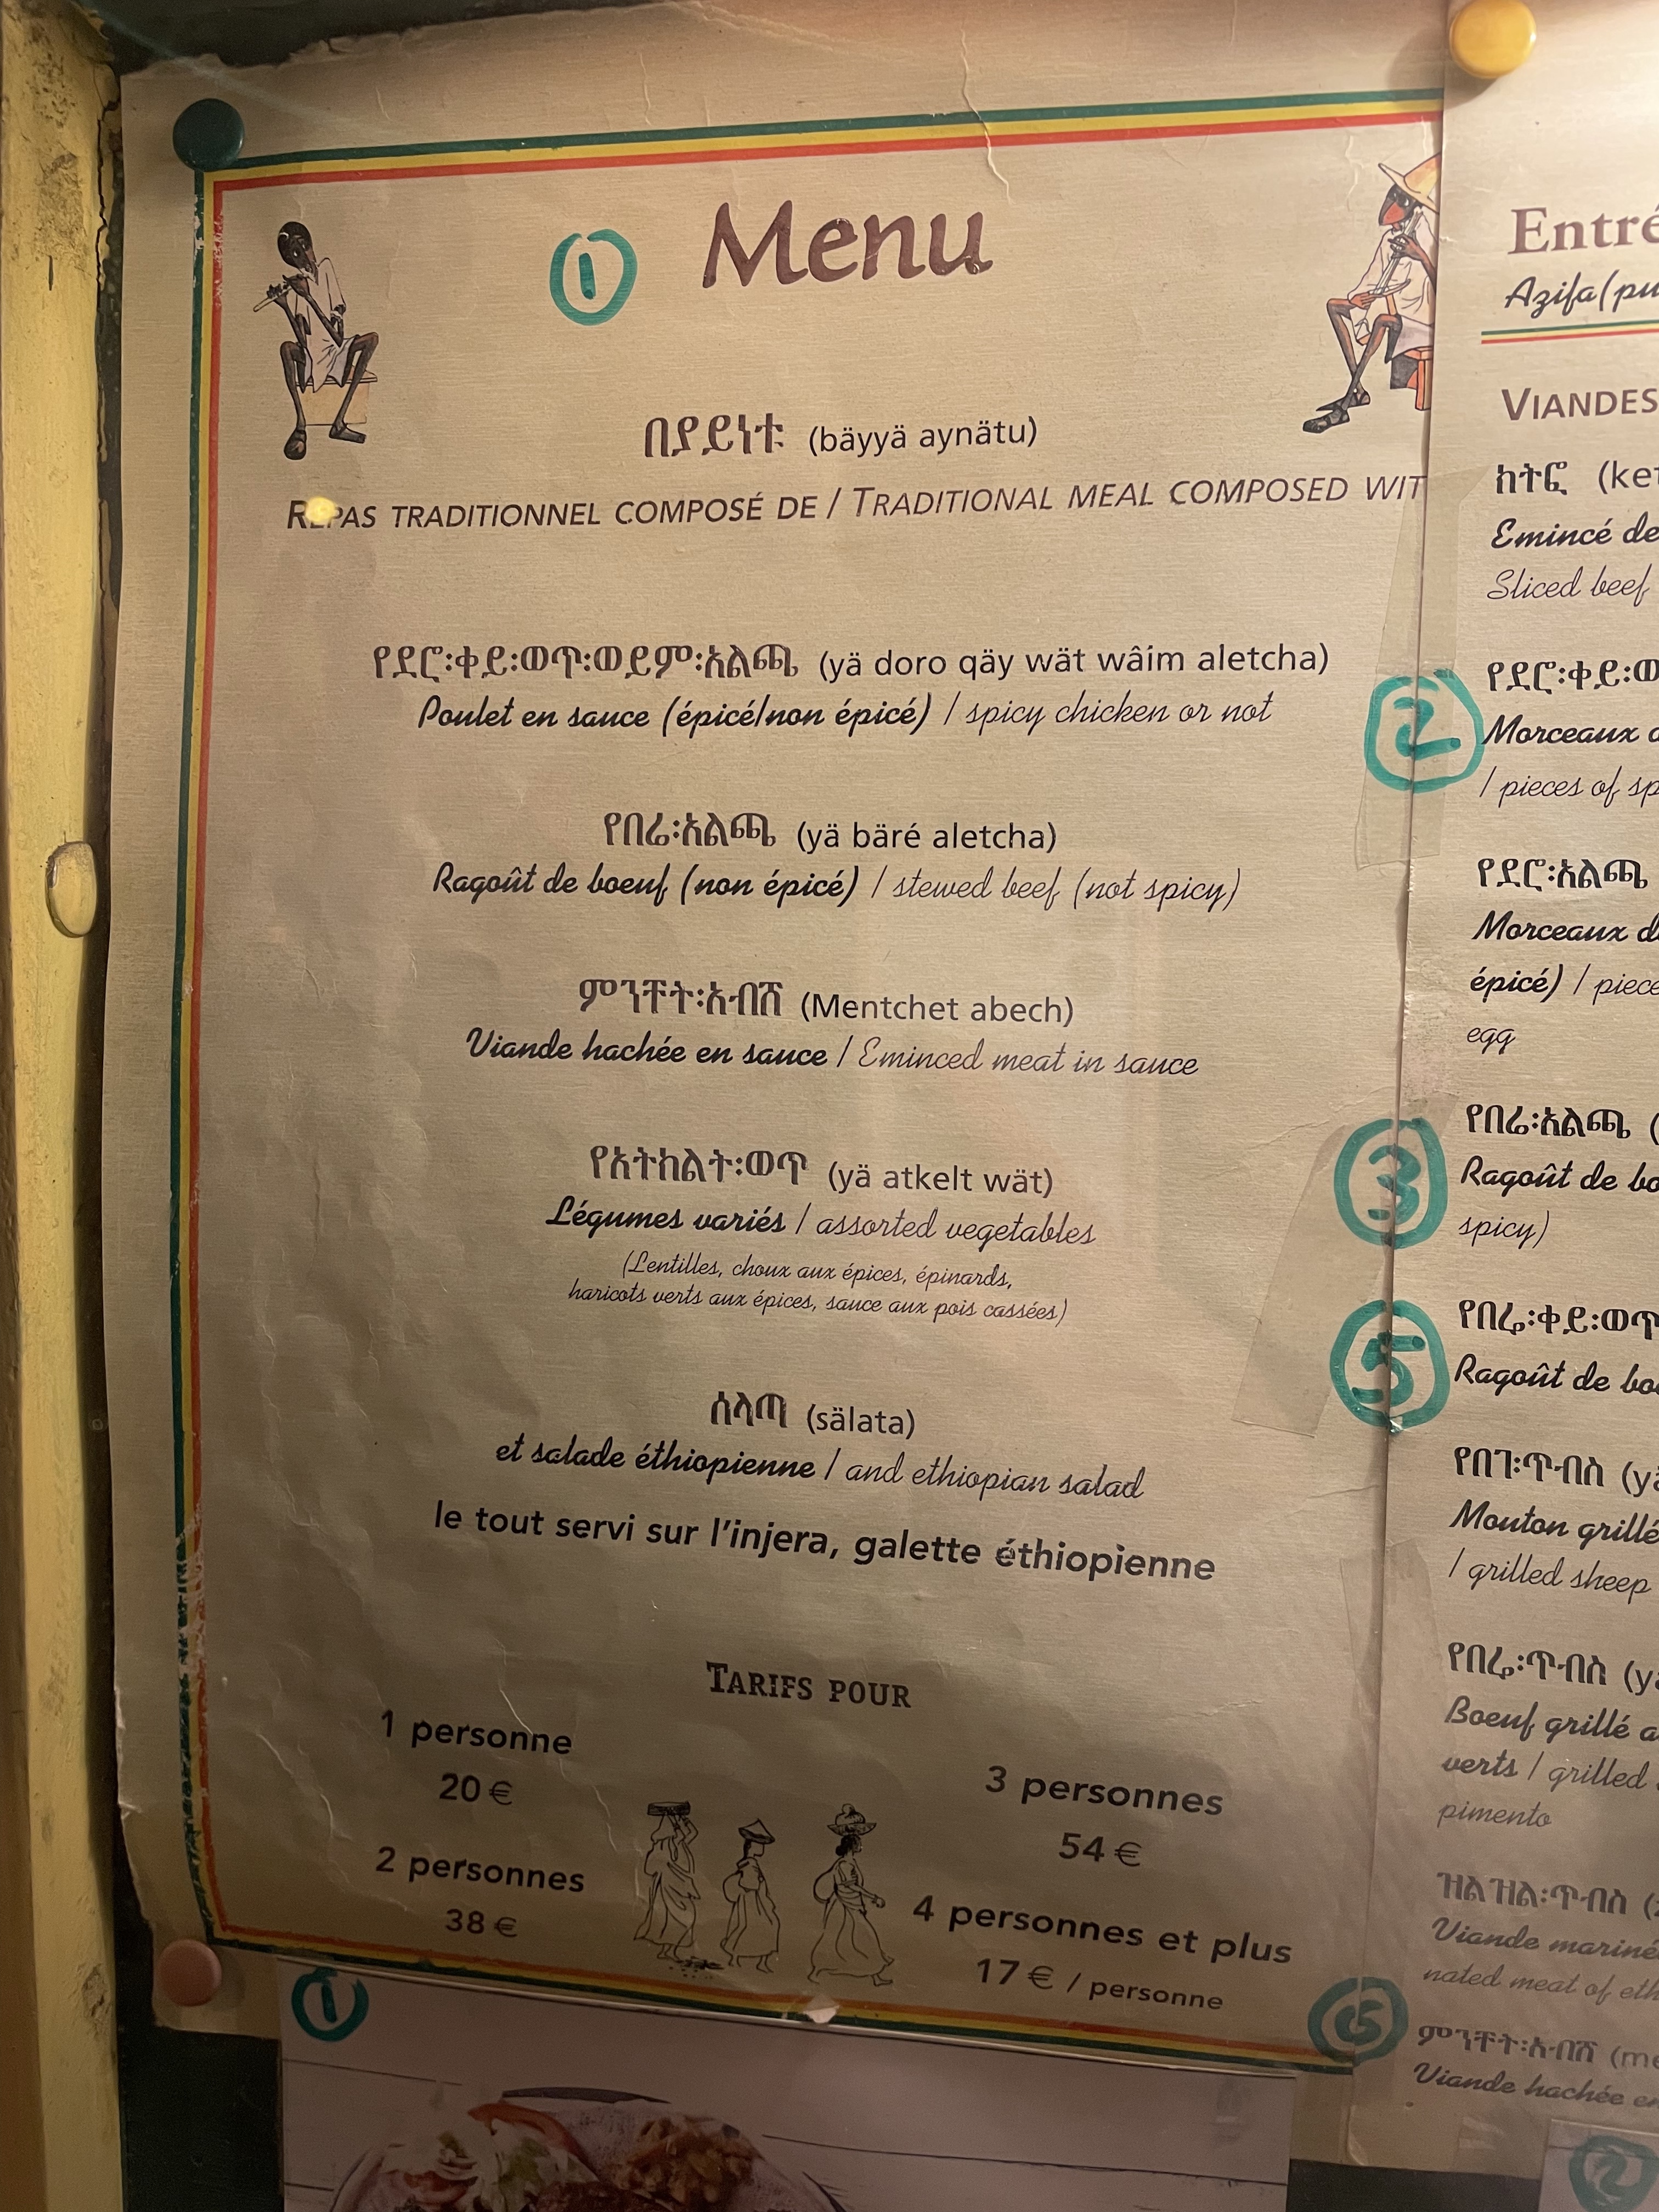 ① Menu
በያይነቱ (bäyyä aynätu)
REPAS TRADITIONNEL COMPOSÉ DE / TRADITIONAL MEAL COMPOSED WIT
የደሮ፡ቀይ፡ወጥ፡ወይም፡አልጫ (yä doro qäy wät wâim aletcha)
Poulet en sauce (épicé/non épicé) / spicy chicken or not
የበሬ፡አልጫ (yä bäré aletcha)
Ragoût de boeuf (non épicé) / stewed beef (not spicy)
ምንቸት፡አብሽ (Mentchet abech)
Viande hachée en sauce / Eminced meat in sauce
የአትክልት፡ወጥ (yä atkelt wät)
Légumes variés / assorted vegetables
(Lentilles, choux aux épices, épinards,
haricots verts aux épices, sauce aux pois cassées)
ሰላጣ (sälata)
et salade éthiopienne / and ethiopian salad
le tout servi sur l'injera, galette éthiopienne
TARIFS POUR
1 personne
20 €
2 personnes
38 €
3 personnes
54 €
4 personnes et plus
17 € / personne
①
Entré
Azifa (pu
VIANDES
ክትፎ (ket
Emincé de
Sliced beef
የደሮ፡ቀይ፡ወ
② Morceaux d
/ pieces of sp
የደሮ፡አልጫ
Morceaux de
épicé) / piece
egg
የበሬ፡አልጫ (
③ Ragoût de bo
spicy)
የበሬ፡ቀይ፡ወጥ
⑤ Ragoût de boe
የበግ፡ጥብስ (yä
Mouton grillé
/ grilled sheep
የበሬ፡ጥብስ (yä
Boeuf grillé a
verts / grilled
pimento
ዝልዝል፡ጥብስ (
Viande mariné
nated meat of eth
⑥ ምንቸት፡አብሽ (me
Viande hachée en
②